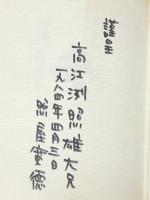 謹呈
高江洲照雄大兄
一九八四年四月三日
照屋寛德